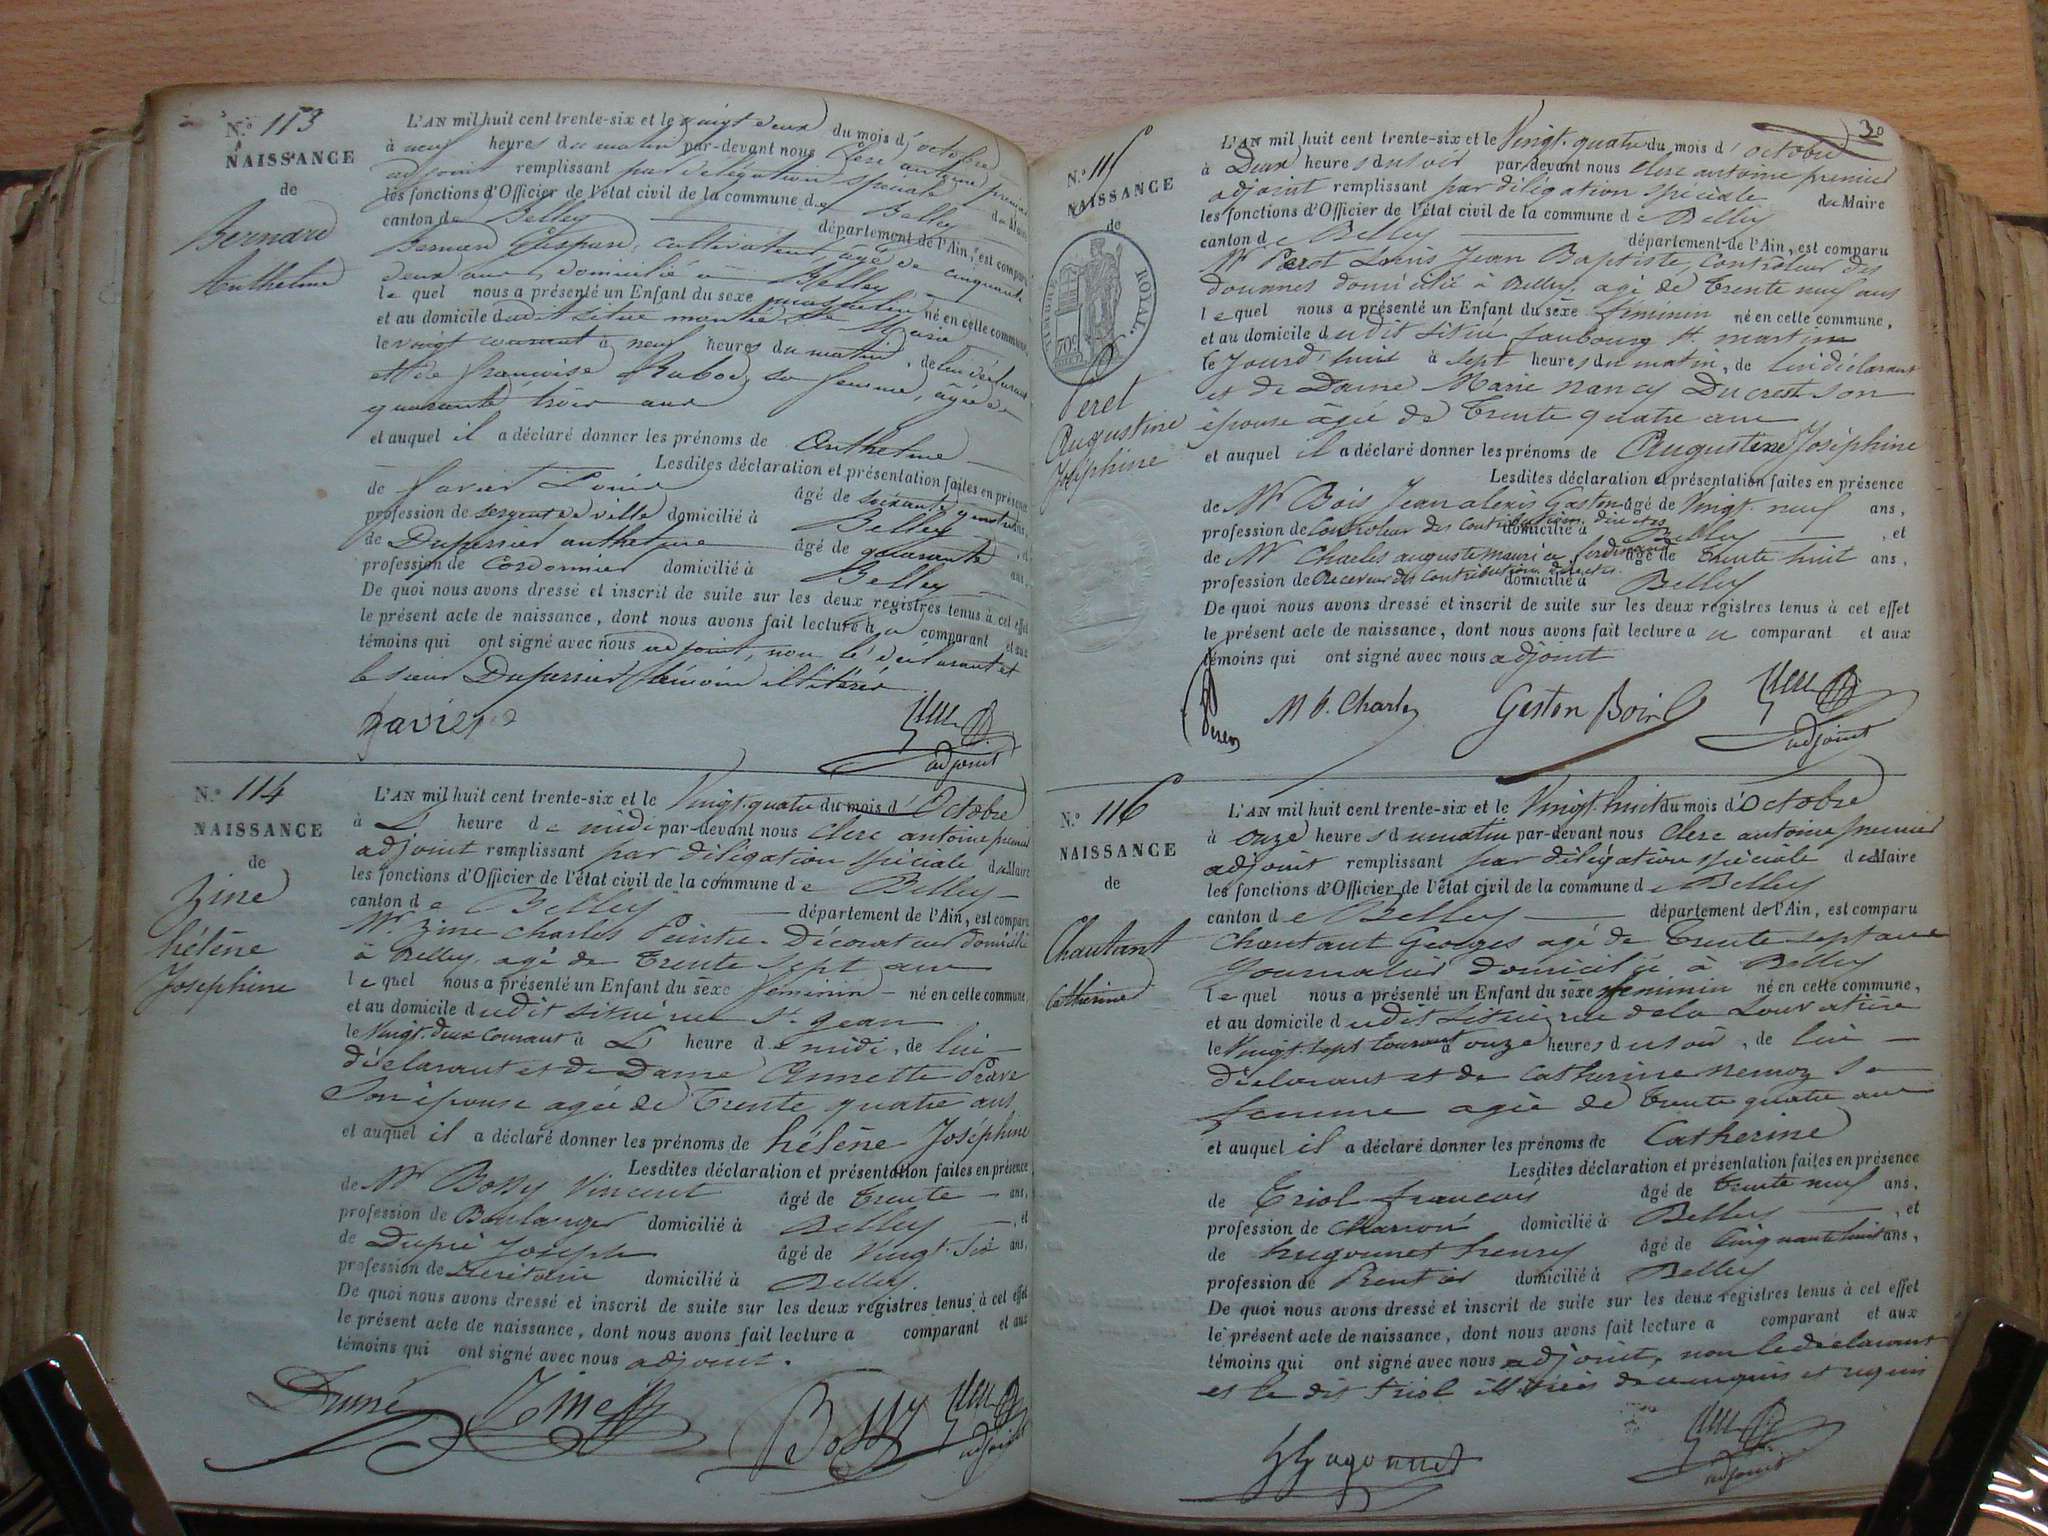 N.º 113
NAISSANCE
de
Bernard
Anthelme
L'AN mil huit cent trente-six et le vingt deux du mois d'octobre
à neuf heures du matin par-devant nous Clerc antoine premier
adjoint remplissant par délégation spéciale du Maire
les fonctions d'Officier de l'état civil de la commune de Belley
canton de Belley département de l'Ain, est comparu
Bernard Gaspard, cultivateur, âgé de cinquante
deux ans, domicilié à Belley
le quel nous a présenté un Enfant du sexe masculin né en cette commune,
et au domicile dudit situé montée Ste Marie
le vingt courant à neuf heures du matin, de lui déclarant
et de françoise Rubod, sa femme, âgée de
quarante trois ans
et auquel il a déclaré donner les prénoms de Anthelme
Lesdites déclaration et présentation faites en présence
de Favier Louis âgé de soixante quatre ans,
profession de sergent de ville domicilié à Belley, et
de Duperrier anthelme âgé de quarante ans,
profession de Cordonnier domicilié à Belley
De quoi nous avons dressé et inscrit de suite sur les deux registres tenus à cet effet
le présent acte de naissance, dont nous avons fait lecture au comparant et aux
témoins qui ont signé avec nous adjoint, non le déclarant et
le sieur Duperrier témoin illitérés
favier
Clerc
adjoint
N.º 114
NAISSANCE
de
Zine
hélène
Josephine
L'AN mil huit cent trente-six et le Vingt-quatre du mois d'Octobre
à L heure de midi par-devant nous Clerc antoine premier
adjoint remplissant par délégation spéciale du Maire
les fonctions d'Officier de l'état civil de la commune de Belley
canton de Belley département de l'Ain, est comparu
Mr. Zine Charles Peintre-Décorateur domicilié
à Belley, agé de trente sept ans
le quel nous a présenté un Enfant du sexe féminin né en cette commune,
et au domicile dudit situé rue St. Jean
le Vingt-Deux Courant à L heure de midi, de lui
déclarant et de Dame Annette
Son épouse agée de trente quatre ans
et auquel il a déclaré donner les prénoms de hélène Joséphine
Lesdites déclaration et présentation faites en présence
de Mr Bossy Vincent âgé de trente ans,
profession de Boulanger domicilié à Belley, et
de Joseph âgé de Vingt-Six ans,
profession de domicilié à Belley
De quoi nous avons dressé et inscrit de suite sur les deux registres tenus à cet effet
le présent acte de naissance, dont nous avons fait lecture a comparant et aux
témoins qui ont signé avec nous adjoint.
Zine
Bossy
Clerc
adjoint
30
N.º 115
NAISSANCE
de
TIMBRE ROYAL.
70c
Peret
Augustine
Joséphine
L'AN mil huit cent trente-six et le Vingt-quatre du mois d'octobre
à Deux heures du soir par-devant nous Clerc antoine premier
adjoint remplissant par délégation spéciale du Maire
les fonctions d'Officier de l'état civil de la commune de Belley
canton de Belley département de l'Ain, est comparu
Mr Peret Louis Jean Baptiste, Contrôleur des
douanes domicilié à Belley, agé de trente neuf ans
le quel nous a présenté un Enfant du sexe féminin né en cette commune,
et au domicile dudit situé faubourg St. martin
le Jourd'hui à sept heures du matin, de lui déclarant
et de Dame Marie nancy Ducrest son
épouse âgée de trente quatre ans
et auquel il a déclaré donner les prénoms de Augustine Joséphine
Lesdites déclaration et présentation faites en présence
de Mr Bois Jean alexis Gaston âgé de Vingt-neuf ans,
profession de Controleur des Contributions directes domicilié à Belley, et
de Mr Charles auguste maurice ferdinand âgé de trente huit ans,
profession de Receveur des Contributions directes domicilié à Belley
De quoi nous avons dressé et inscrit de suite sur les deux registres tenus à cet effet
le présent acte de naissance, dont nous avons fait lecture a u comparant et aux
témoins qui ont signé avec nous adjoint
Peret
M f. Charles
Gaston Bois
Clerc
adjoint
N.º 116
NAISSANCE
de
Chautant
Catherine
L'AN mil huit cent trente-six et le Vingt-huit du mois d'Octobre
à onze heures du matin par-devant nous Clerc antoine premier
adjoint remplissant par délégation spéciale du Maire
les fonctions d'Officier de l'état civil de la commune de Belley
canton de Belley département de l'Ain, est comparu
Chautant Georges agé de trente sept ans
Journalier domicilié à Belley
le quel nous a présenté un Enfant du sexe féminin né en cette commune,
et au domicile dudit situé rue de la Louvatière
le Vingt-sept Courant à onze heures du soir, de lui
déclarant et de Catherine nemoz Sa
femme agée de trente quatre ans
et auquel il a déclaré donner les prénoms de Catherine
Lesdites déclaration et présentation faites en présence
de Triol françois âgé de trente neuf ans,
profession de Charron domicilié à Belley, et
de hugonnet henry âgé de Cinquante huit ans,
profession de Rentier domicilié à Belley
De quoi nous avons dressé et inscrit de suite sur les deux registres tenus à cet effet
le présent acte de naissance, dont nous avons fait lecture a comparant et aux
témoins qui ont signé avec nous adjoint, non le déclarant
et le dit triol illitérés de ce enquis et requis
hugonnet
Clerc
adjoint